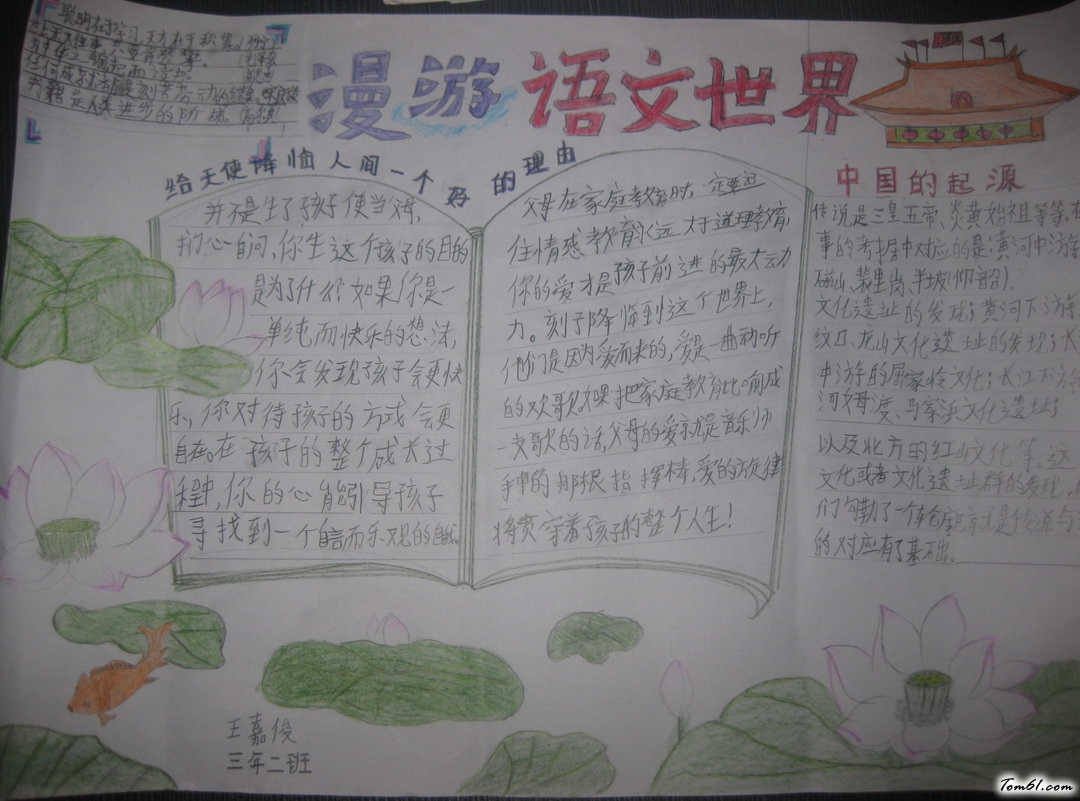 聪明在于学习，天才在于积累。
书籍是人类进步的阶梯。
漫游语文世界
给天使降临人间一个好的理由
并不是生了孩子便当父母，
扪心自问，你生这个孩子的目的
是为了什么？如果你是一
单纯而快乐的想法，
你会发现孩子会更快
乐，你对待孩子的方式会更
自在。在孩子的整个成长过
程中，你的心能引导孩子
寻找到一个自信而乐观的自我。
父母在家庭教育时，一定要记
住情感教育永远大于道理教育，
你的爱才是孩子前进的最大动
力。刻子降临到这个世界上，
他们是因为爱而来的，爱是一曲动听
的欢歌，如果把家庭教育比喻成
一支歌的话，父母的爱就是音乐师
手中的那根指挥棒，爱的旋律
将贯穿着孩子的整个人生！
中国的起源
传说是三皇五帝、炎黄始祖等等，在
事的考据中对应的是：黄河中游
磁山、裴里岗、半坡（仰韶）
文化遗址的发现；黄河下游
纹口、龙山文化遗址的发现；长
中游的屈家岭文化；长江下游
河姆渡、马家浜文化遗址；
以及北方的红山文化等。这
文化或者文化遗址群的发现，
们勾勒了一个轮廓，就是传说与
的对应有了基础。
王嘉俊
三年二班
Tom61.com